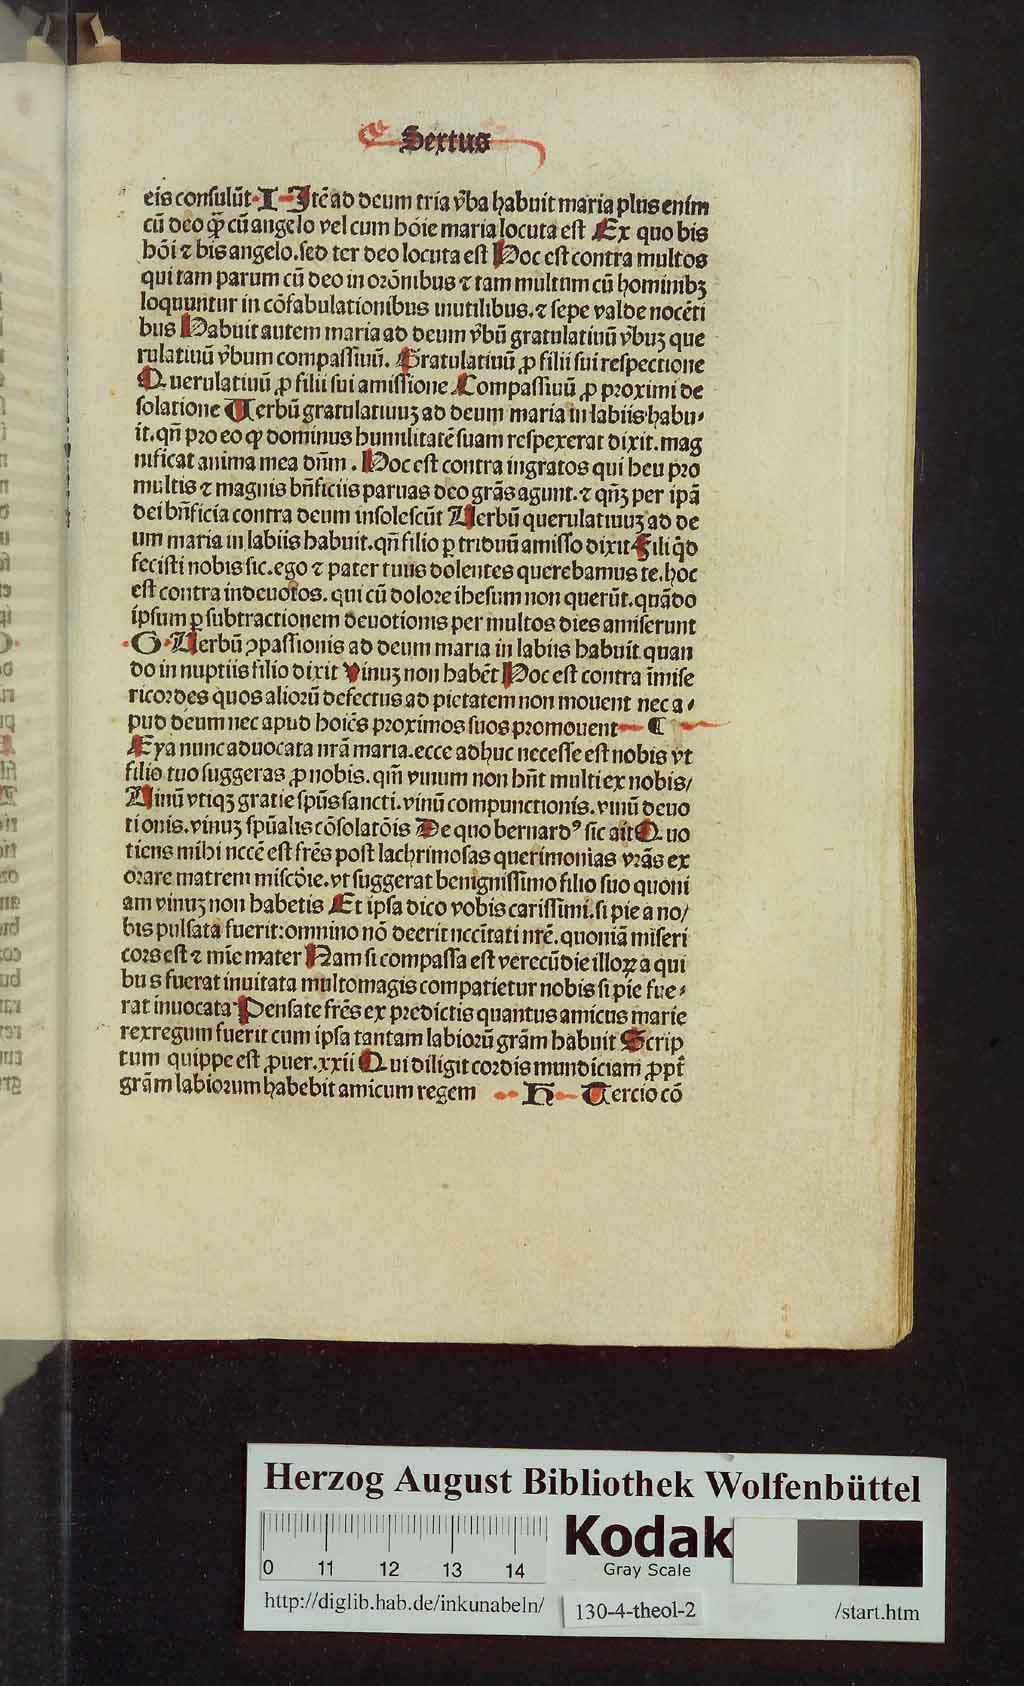 Sextus
eis consulūt I Itē ad deum tria v̄ba habuit maria plus enim
cū deo q̄ꝫ cū angelo vel cum hōie maria locuta est Ex quo bis
hōi ⁊ bis angelo. sed ter deo locuta est Hoc est contra multos
qui tam parum cū deo in orōnibus ⁊ tam multum cū hominibꝫ
loquuntur in cōfabulationibus inutilibus. ⁊ sepe valde nocēti
bus Habuit autem maria ad deum v̄bū gratulatiuū v̄buꝫ que
rulatiuū v̄bum compassiuū. Gratulatiuū ꝓ filii sui respectione
Querulatiuū ꝓ filii sui amissione Compassiuū ꝓ proximi de
solatione Uerbū gratulatiuuꝫ ad deum maria in labiis habu-
it. qn̄ pro eo ꝙ dominus humilitatē suam respexerat dixit. mag
nificat anima mea dn̄m. Hoc est contra ingratos qui heu pro
multis ⁊ magnis bn̄ficiis paruas deo grās agunt. ⁊ qn̄ꝫ per ipā
dei bn̄ficia contra deum insolescūt Uerbū querulatiuuꝫ ad de
um maria in labiis habuit. qn̄ filio ꝑ triduū amisso dixit Fili qͥd
fecisti nobis sic. ego ⁊ pater tuus dolentes querebamus te. hoc
est contra indeuotos. qui cū dolore ihesum non querūt. quādo
ipsum ꝑ subtractionem deuotionis per multos dies amiserunt
G Uerbū ꝯpassionis ad deum maria in labiis habuit quan
do in nuptiis filio dixit Vinuꝫ non habēt Hoc est contra īmise
ricordes quos aliorū defectus ad pietatem non mouent nec a-
pud deum nec apud hoiēs proximos suos promouent ¶
Eya nunc aduocata nrā maria. ecce adhuc necesse est nobis vt
filio tuo suggeras ꝓ nobis. qm̄ vinum non hn̄t multi ex nobis/
Uinū vtiqꝫ gratie spūs sancti. vinū compunctionis. vinū deuo
tionis. vinuꝫ spūalis cōsolatōis De quo bernardꝰ sic ait Quo
tiens mihi nccē est frēs post lachrimosas querimonias vrās ex
orare matrem miscdīe. vt suggerat benignissimo filio suo quoni
am vinuꝫ non habetis Et ipsa dico vobis carissimi. si pie a no/
bis pulsata fuerit: omnino nō deerit nccītati nrē. quoniā miseri
cors est ⁊ mīe mater Nam si compassa est verecūdie illoꝝ a qui
bus fuerat inuitata multomagis compatietur nobis si pie fue-
rat inuocata Pensate frēs ex predictis quantus amicus marie
rex regum fuerit cum ipsa tantam labiorū grām habuit Scrip
tum quippe est ꝓuer. xxii Qui diligit cordis mundiciam ꝓpt̄
grām labiorum habebit amicum regem H Tercio cō
Herzog August Bibliothek Wolfenbüttel
0 11 12 13 14
Kodak
Gray Scale
http://diglib.hab.de/inkunabeln/ 130-4-theol-2 /start.htm